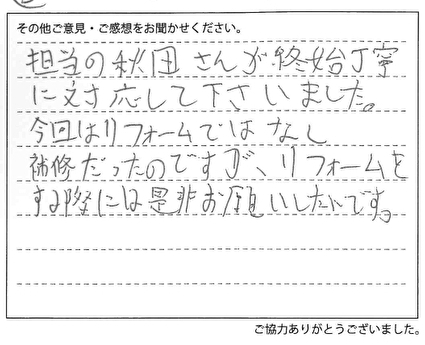 その他ご意見・ご感想をお聞かせください。
担当の秋田さんが終始丁寧
に対応して下さいました。
今回はリフォームではなし
補修だったのですが、リフォームを
する際には是非お願いしたいです。
ご協力ありがとうございました。